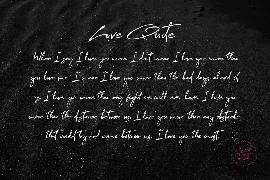 Love Qute
When I say I love you more, I don't mean I love you more than
you love me. I mean I love you more than the bad days ahead of
I love you more than any fight we will ever have. I love you
more than the distance between us, I love you more than any obstacle
that could try and come between us. I love you the most."